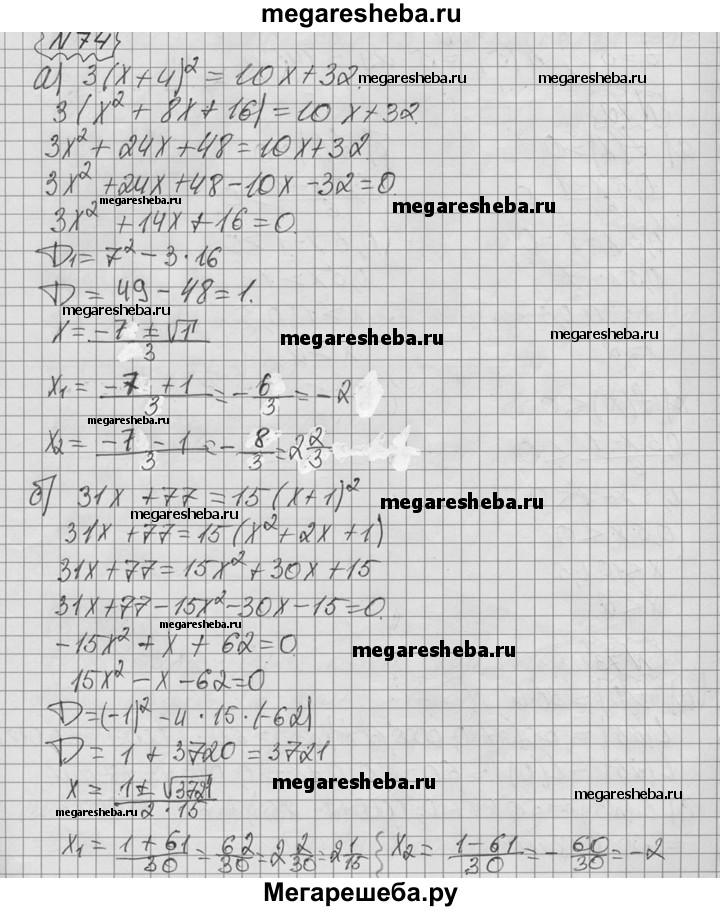 megaresheba.ru
N 74
а) 3(x+4)² = 10x+32 megaresheba.ru megaresheba.ru
3(x² + 8x + 16) = 10x+32
3x² + 24x + 48 = 10x+32
3x² + 24x + 48 - 10x - 32 = 0
megaresheba.ru megaresheba.ru
3x² + 14x + 16 = 0
D₁ = 7² - 3 · 16
D = 49 - 48 = 1.
megaresheba.ru
x = (-7 ± √1)/3 megaresheba.ru megaresheba.ru
x₁ = (-7 + 1)/3 = -6/3 = -2
megaresheba.ru
x₂ = (-7 - 1)/3 = -8/3 = 2 2/3
б) 31x + 77 = 15(x+1)² megaresheba.ru
megaresheba.ru
31x + 77 = 15(x² + 2x + 1)
31x + 77 = 15x² + 30x + 15
31x + 77 - 15x² - 30x - 15 = 0
megaresheba.ru
-15x² + x + 62 = 0 megaresheba.ru
15x² - x - 62 = 0
D = (-1)² - 4 · 15 · (-62)
D = 1 + 3720 = 3721
x = (1 ± √3721)/(2 · 15) megaresheba.ru megaresheba.ru
megaresheba.ru
x₁ = (1 + 61)/30 = 62/30 = 2 2/30 = 2 1/15 } x₂ = (1 - 61)/30 = -60/30 = -2
Мегарешеба.ру